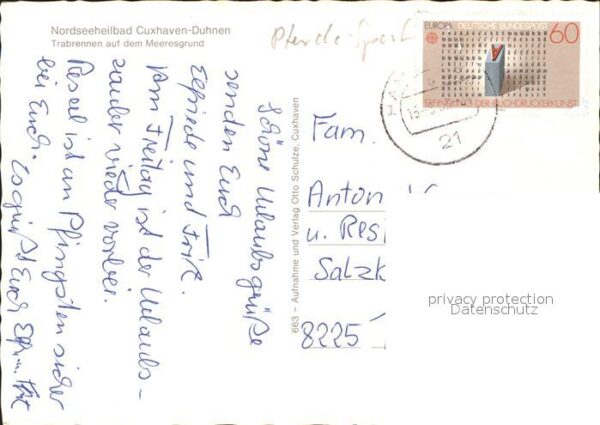 Nordseeheilbad Cuxhaven-Duhnen
Trabrennen auf dem Meeresgrund
Pferde-Sport
EUROPA DEUTSCHE BUNDESPOST 60
ERFINDUNG DER BUCHDRUCKERKUNST
21
Schöne Urlaubsgrüße
senden Euch
Elfriede und Fritz.
Am Freitag ist der Urlaubs-
zauber wieder vorbei.
Resel ist an Pfingsten sicher
bei Euch. Es grüßt Euch
663 – Aufnahme und Verlag Otto Schulze, Cuxhaven
Fam.
Anton
u. Resi
Salzk
8225
privacy protection
Datenschutz